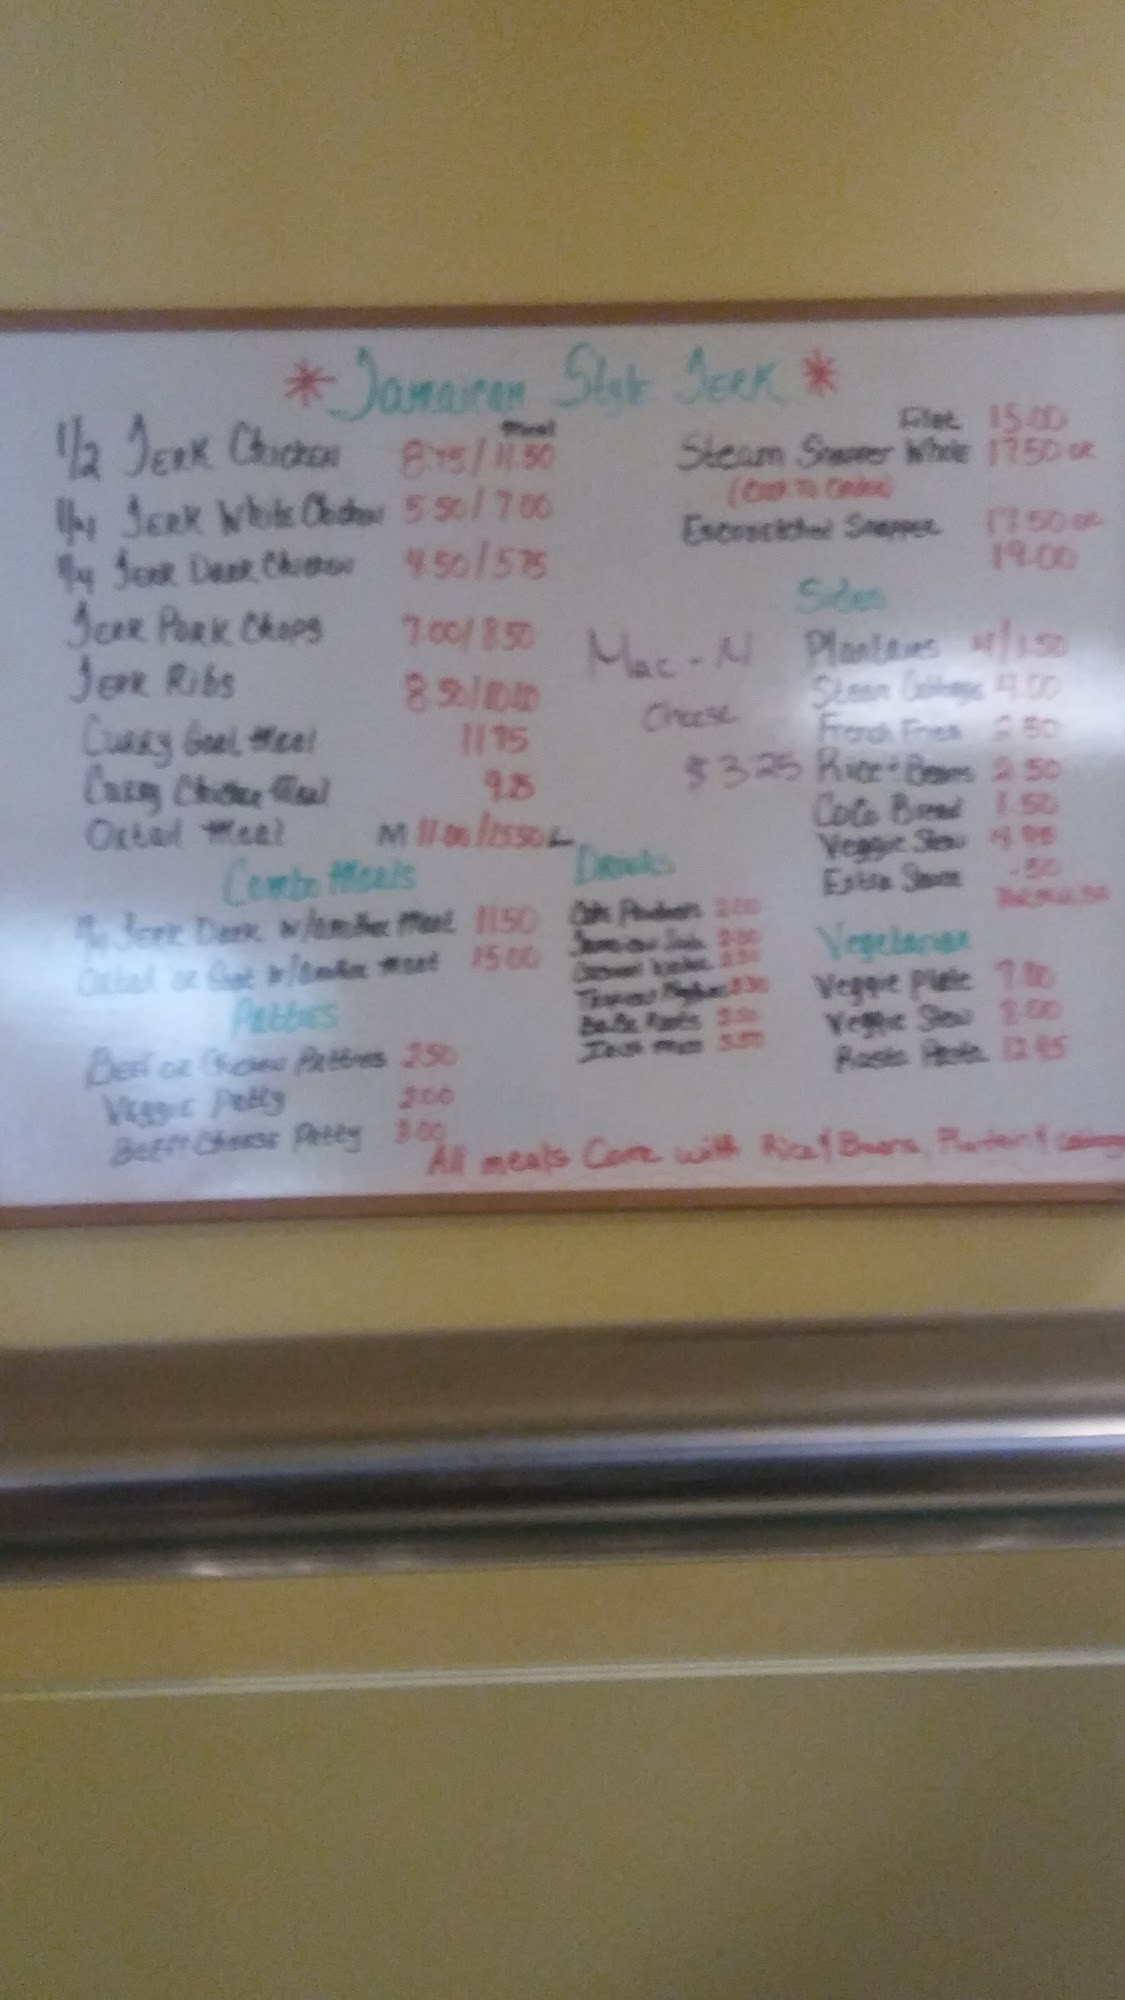 * Jamaican Style Jerk *
Meal
1/2 Jerk Chicken 8.75/11.50
1/4 Jerk White Chicken 5.50/7.00
1/4 Jerk Dark Chicken 4.50/5.75
Jerk Pork Chops 7.00/8.50
Jerk Ribs 8.50/10.00
Curry Goat Meal 11.75
Curry Chicken Meal 9.25
Oxtail Meal M 11.00/15.50 L
Combo Meals
1/4 Jerk Dark w/another Meat 11.50
Oxtail or Goat w/another meat 15.00
Patties
Beef or Chicken Patties 2.50
Veggie Patty 2.00
Beef/Cheese Patty 3.00
Filet 15.00
Steam Snapper Whole 17.50 or
(Cook to Order)
Snapper 17.50 or
19.00
Mac-N
Cheese
$3.25
Sides
Plantains 4/1.50
Steam Cabbage 4.00
French Fries 2.50
Rice + Beans 2.50
Coco Bread 1.50
Veggie Stew 4.95
Extra Sauce .50
Drinks
2.00
Irish Moss
Vegetarian
Veggie Plate 7.00
Veggie Stew 8.00
Rasta Pasta 12.95
All meals Come with Rice & Beans, Plantain & Cabbage